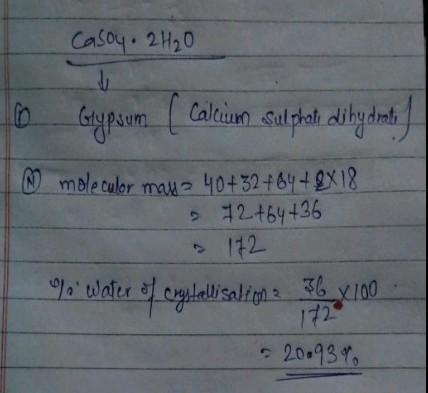 CaSO4 · 2H2O
↓
(i) Gypsum [Calcium sulphate dihydrate]
(ii) molecular mass = 40+32+64+2×18
= 72+64+36
= 172
% water of crystallisation = 36/172 × 100
= 20.93%